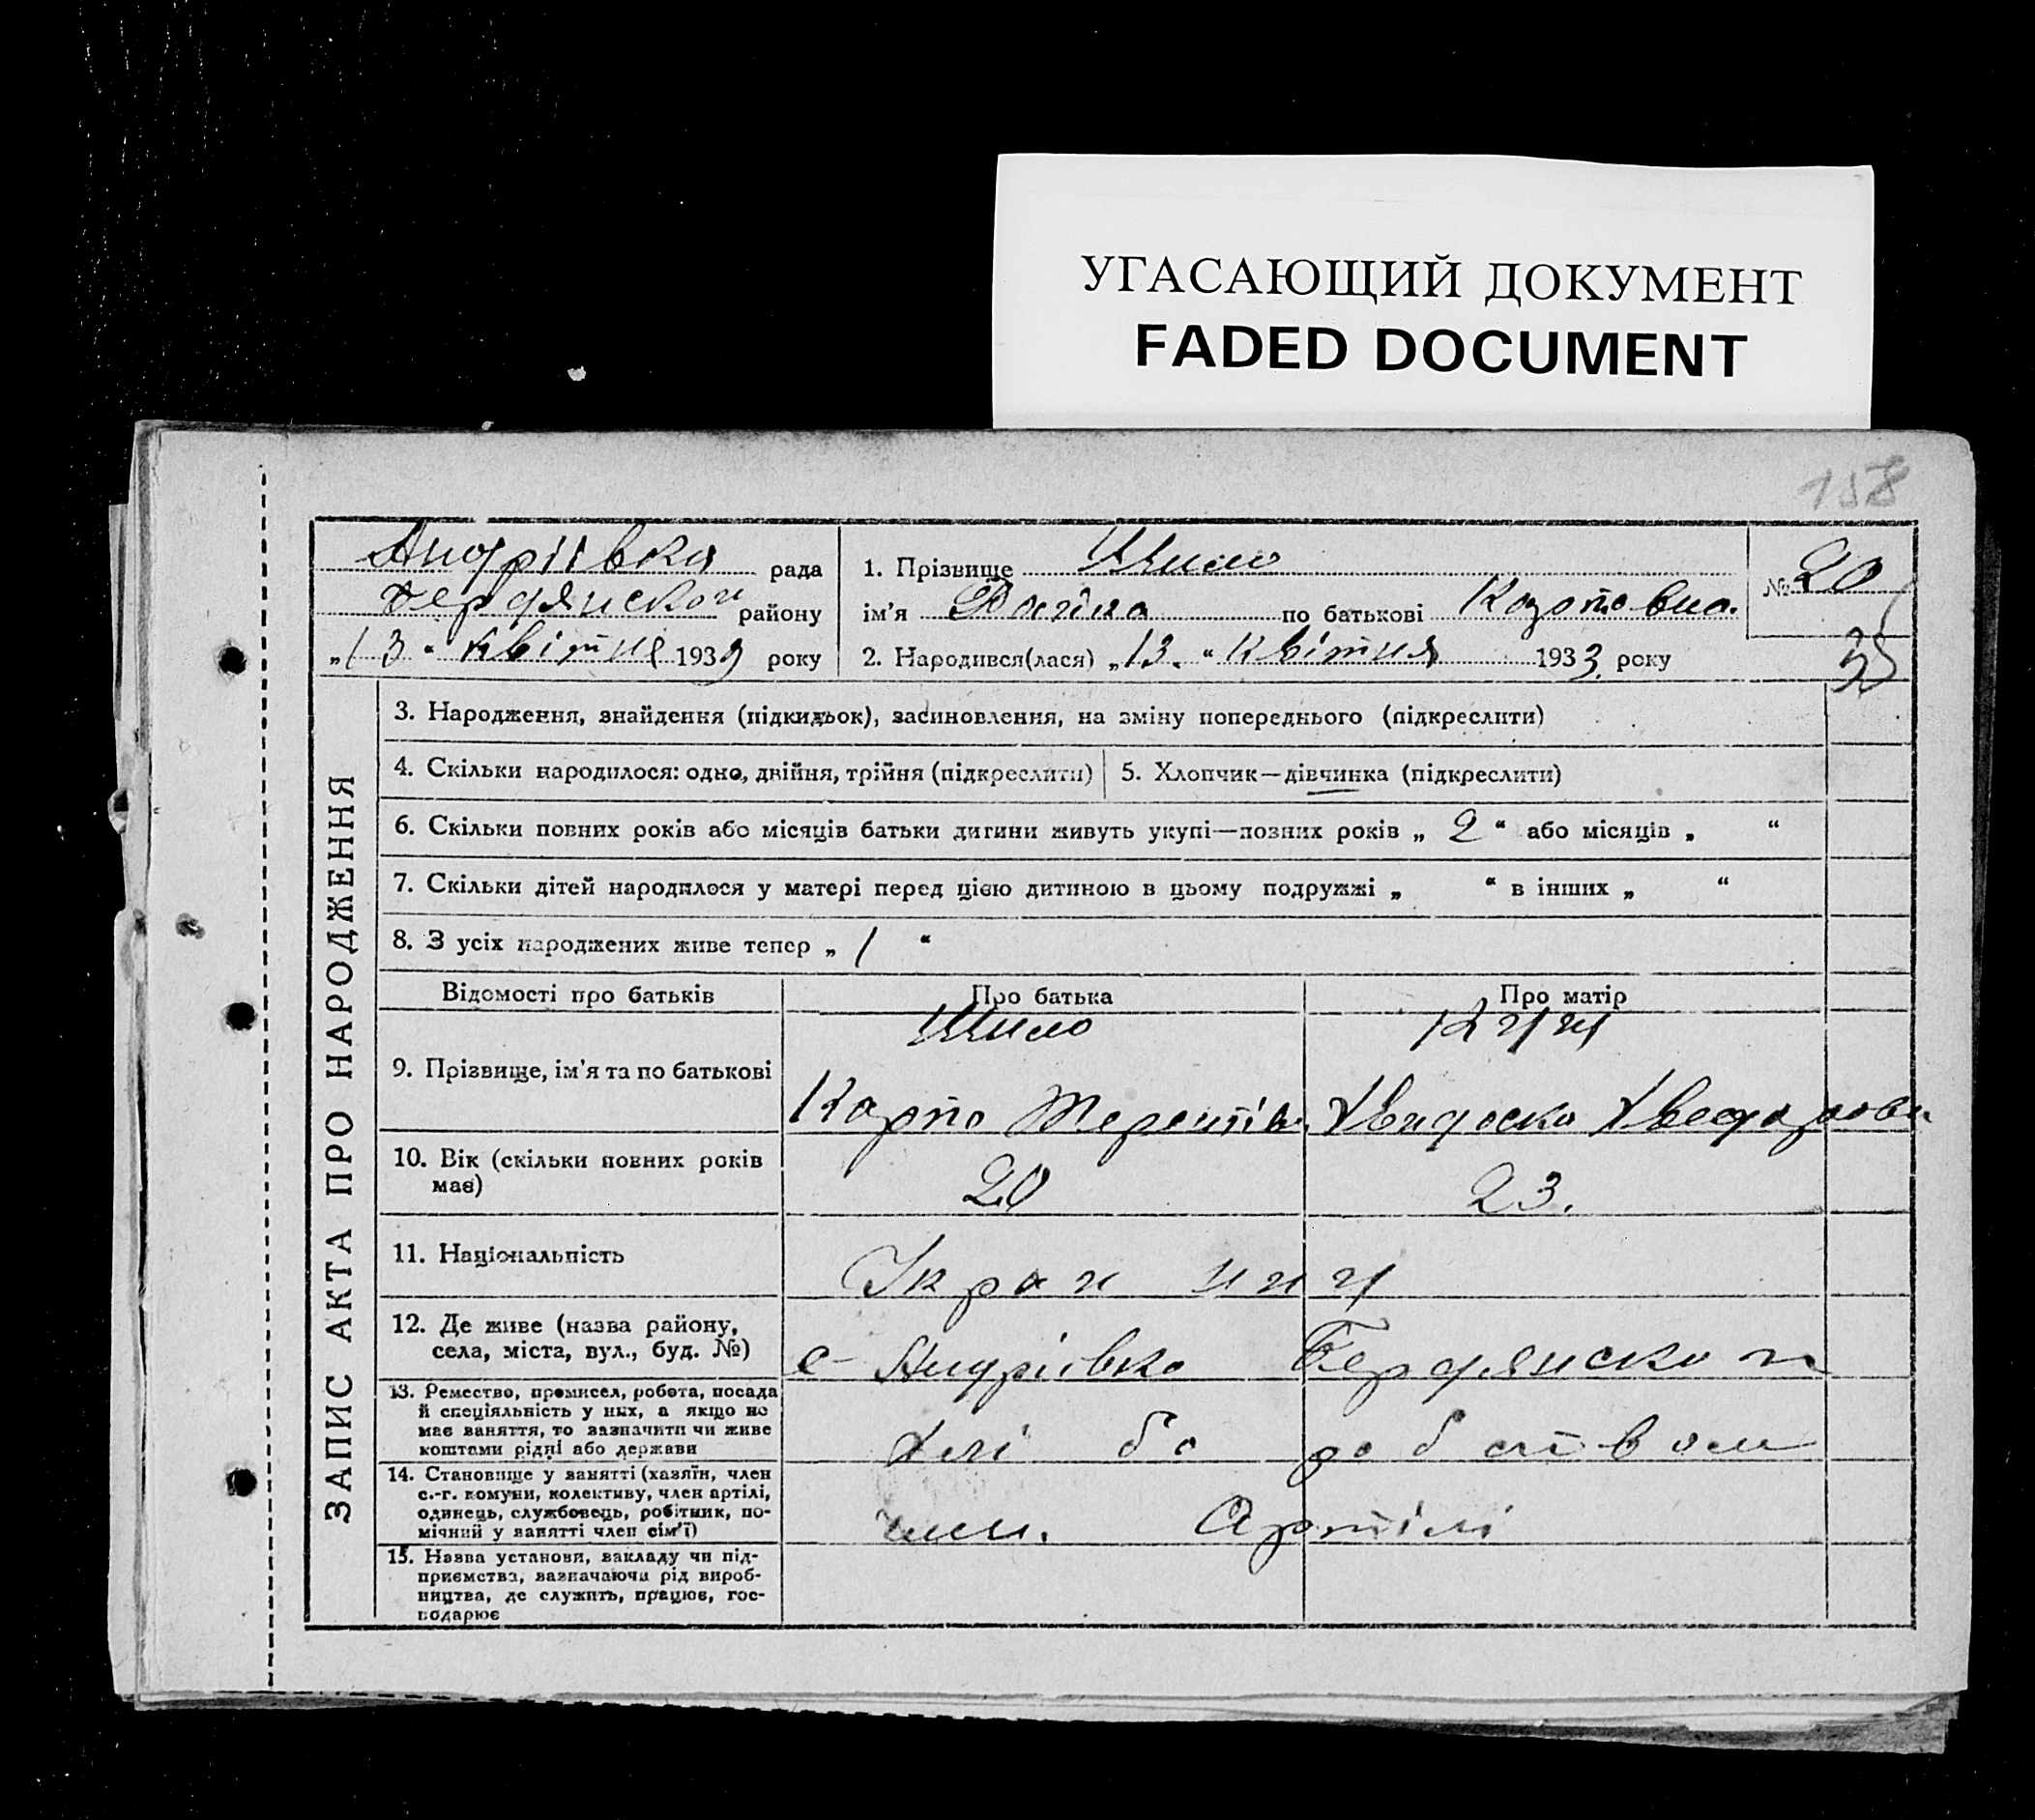 УГАСАЮЩИЙ ДОКУМЕНТ
FADED DOCUMENT
158
Андріівка рада
Бердянскои району
„13“ квітня 1933 року
1. Прізвище Шило
ім’я по батькові Карповна.
2. Народився(лася) „13.“ квітня 1933. року
№ 20
35
ЗАПИС АКТА ПРО НАРОДЖЕННЯ
3. Народження, знайдення (підкидьок), засиновлення, на зміну попереднього (підкреслити)
4. Скільки народилося: одно, двійня, трійня (підкреслити)
5. Хлопчик—дівчинка (підкреслити)
6. Скільки повних років або місяців батьки дитини живуть укупі—повних років „ 2 “ або місяців „ “
7. Скільки дітей народилося у матері перед цією дитиною в цьому подружжі „ “ в інших „ “
8. З усіх народжених живе тепер „ 1 “
Відомості про батьків
Про батька
Про матір
9. Прізвище, ім’я та по батькові
Шило
Карпо
10. Вік (скільки повних років
має)
20
23.
11. Національність
Украи нци
12. Де живе (назва району,
села, міста, вул., буд. №)
с- Андріівка Бердянскои
13. Ремество, промисел, робота, посада
й спеціяльність у них, а якщо не
має заняття, то зазначити чи живе
коштами рідні або держави
хлі бо робством
14. Становище у занятті (хазяїн, член
с.-г. комуни, колективу, член артілі,
одинець, службовець, робітник, по-
мічний у занятті член сім’ї)
член. Артілі
15. Назва установи, закладу чи під-
приємства, зазначаючи рід вироб-
ництва, де служить, працює, гос-
подарює